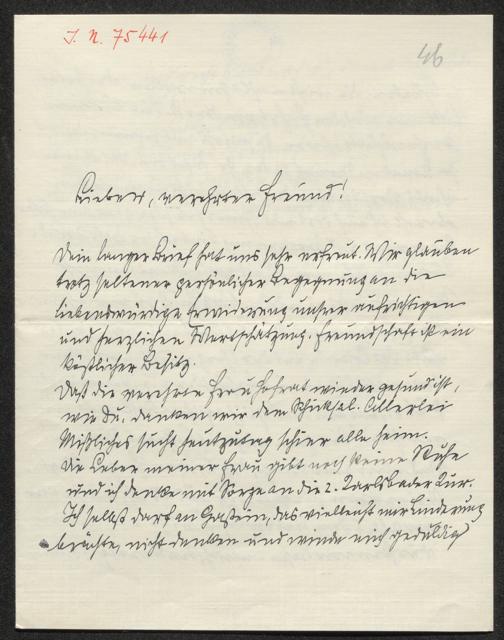 J. N. 75441
46
Lieber, verehrter Freund!
Dein langer Brief hat uns sehr erfreut. Wir glauben
trotz seltener persönlicher Begegnung an die
liebenswürdige Erwiderung unsrer aufrichtigen
und herzlichen Wertschätzung. Freundschaft ist ein
köstlicher Besitz.
Daß die verehrte Frau Hofrat wieder gesund ist,
wie Du, danken wir dem Schicksal. Allerlei
Mißliches sucht heutzutag schier alle heim.
Die Leber meiner Frau gibt noch keine Ruhe
und ich denke mit Sorge an die 2. Karlsbader Kur.
Ich selbst darf an Gastein, das vielleicht mir Linderung
brächte, nicht denken und winde mich geduldig